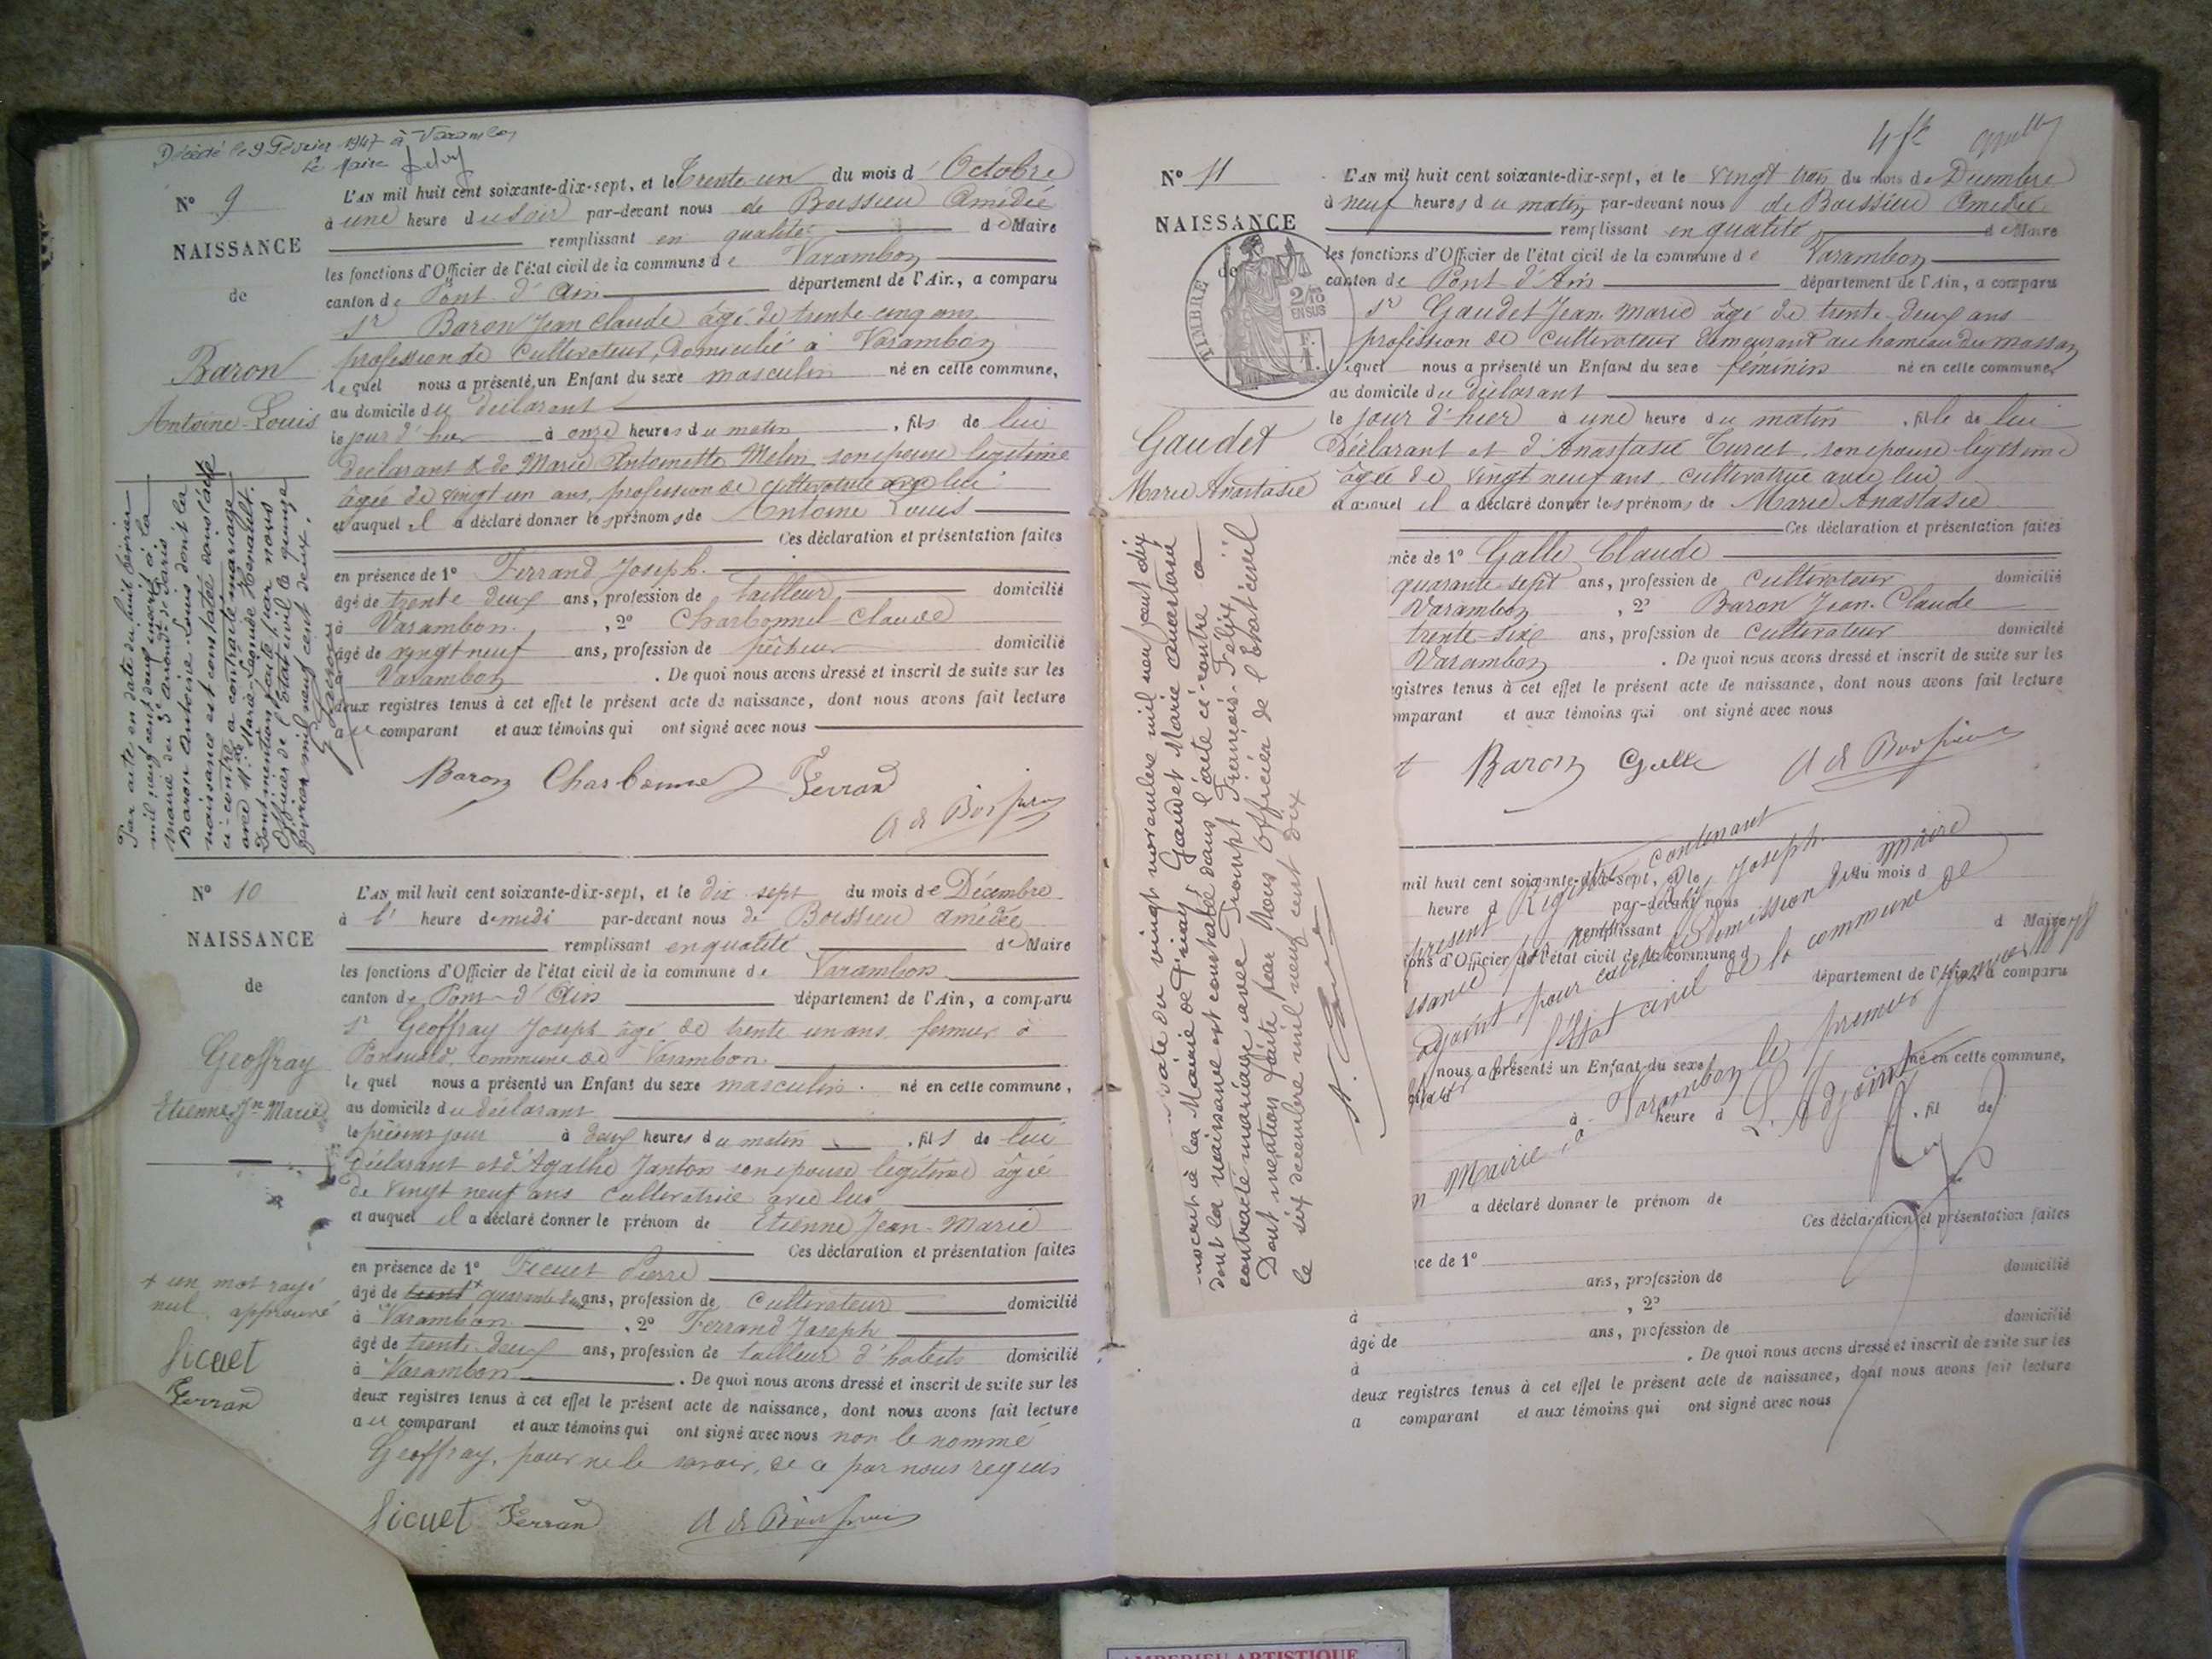 Décédé le 9 Février 1947 à Varambon
Le Maire
N° 9
NAISSANCE
de
Baron
Antoine-Louis
L'AN mil huit cent soixante-dix-sept, et le Trente un du mois d' Octobre
à une heure du soir par-devant nous de Boissieu Amédée
remplissant en qualité de Maire
les fonctions d'Officier de l'état civil de la commune de Varambon
canton de Pont d'Ain département de l'Ain, a comparu
Sr Baron Jean Claude âgé de trente cinq ans
profession de Cultivateur, domicilié à Varambon
lequel nous a présenté un Enfant du sexe masculin né en cette commune,
au domicile du déclarant
le jour d'hier à onze heures du matin , fils de lui
déclarant & de Marie Antoinette Melin son épouse légitime
âgée de vingt un ans, profession de cultivatrice avec lui
et auquel il a déclaré donner les prénoms de Antoine Louis
Ces déclaration et présentation faites
en présence de 1° Ferrand Joseph
âgé de trente deux ans, profession de tailleur domicilié
à Varambon , 2° Charbonnel Claude
âgé de vingt neuf ans, profession de pêcheur domicilié
à Varambon . De quoi nous avons dressé et inscrit de suite sur les
deux registres tenus à cet effet le présent acte de naissance, dont nous avons fait lecture
au comparant et aux témoins qui ont signé avec nous
Baron Charbonnel Ferrand
A de Boissieu
Par acte en date du huit février
mil neuf cent deux inscrit à la
Mairie du 3e arrondt de Paris
Baron Antoine-Louis dont la
naissance est constatée dans l'acte
ci-contre a contracté mariage
avec Marie Léonide Herault.
Dont mention faite par nous
Officier de l'Etat civil le quinze
février mil neuf cent deux.
N° 10
NAISSANCE
de
Geoffray
Etienne Jn Marie
L'AN mil huit cent soixante-dix-sept, et le dix sept du mois de Décembre
à l' heure de midi par-devant nous de Boissieu Amédée
remplissant en qualité de Maire
les fonctions d'Officier de l'état civil de la commune de Varambon
canton de Pont-d'Ain département de l'Ain, a comparu
Sr Geoffray Joseph âgé de trente un ans fermier à
commune de Varambon
lequel nous a présenté un Enfant du sexe masculin né en cette commune,
au domicile du déclarant
le présent jour à deux heures du matin , fils de lui
déclarant et d'Agathe Janton son épouse légitime âgée
de vingt neuf ans cultivatrice avec lui
et auquel il a déclaré donner le prénom de Etienne Jean-Marie
Ces déclaration et présentation faites
en présence de 1° Ficuet Pierre
âgé de trente quarante deux ans, profession de Cultivateur domicilié
à Varambon , 2° Ferrand Joseph
âgé de trente deux ans, profession de tailleur d'habits domicilié
à Varambon . De quoi nous avons dressé et inscrit de suite sur les
deux registres tenus à cet effet le présent acte de naissance, dont nous avons fait lecture
au comparant et aux témoins qui ont signé avec nous non le nommé
Geoffray, pour ne le savoir, de ce par nous requis
Ficuet Ferrand A de Boissieu
+ un mot rayé
nul approuvé
Ficuet
Ferrand
4 ft
N° 11
NAISSANCE
de
TIMBRE
2/10
EN SUS
Gaudet
Marie Anastasie
L'AN mil huit cent soixante-dix-sept, et le vingt trois du mois de Décembre
à neuf heures du matin par-devant nous de Boissieu Amédée
remplissant en qualité de Maire
les fonctions d'Officier de l'état civil de la commune de Varambon
canton de Pont d'Ain département de l'Ain, a comparu
Sr Gaudet Jean Marie âgé de trente-deux ans
profession de cultivateur demeurant au hameau du masson
lequel nous a présenté un Enfant du sexe féminin né en cette commune,
au domicile du déclarant
le jour d'hier à une heure du matin , fille de lui
déclarant et d'Anastasie Curcet, son épouse légitime
âgée de vingt neuf ans cultivatrice avec lui
et auquel il a déclaré donner les prénoms de Marie Anastasie
Ces déclaration et présentation faites
nce de 1° Galle Claude
quarante sept ans, profession de cultivateur domicilié
Varambon , 2° Baron Jean-Claude
trente-six ans, profession de Cultivateur domicilié
Varambon . De quoi nous avons dressé et inscrit de suite sur les
gistres tenus à cet effet le présent acte de naissance, dont nous avons fait lecture
omparant et aux témoins qui ont signé avec nous
t Baron Galle A de Boissieu
date du vingt novembre mil neuf cent dix
inscrit à la Mairie de Gaudet Marie Anastasie
dont la naissance est constatée dans l'acte ci-contre a
contracté mariage avec François-Félix
Dont mention faite par Nous Officier de l'Etat civil
le dix décembre mil neuf cent dix
mil huit cent soixante-dix-sept, et le du mois d
heure d par-devant nous
remplissant d Maire
ions d'Officier de l'état civil de la commune d
département de l'Ain, a comparu
nous a présenté un Enfant du sexe né en cette commune,
à heure d , fil de
a déclaré donner le prénom de
Ces déclaration et présentation faites
ce de 1°
ans, profession de domicilié
à , 2°
âgé de ans, profession de domicilié
à . De quoi nous avons dressé et inscrit de suite sur les
deux registres tenus à cet effet le présent acte de naissance, dont nous avons fait lecture
a comparant et aux témoins qui ont signé avec nous
présent Registre contenant
Joseph
adjoint, pour cause de démission du Maire
l'Etat civil de la commune de
Mairie à Varambon le premier janvier
L'Adjoint
AMBERIEU ARTISTIQUE